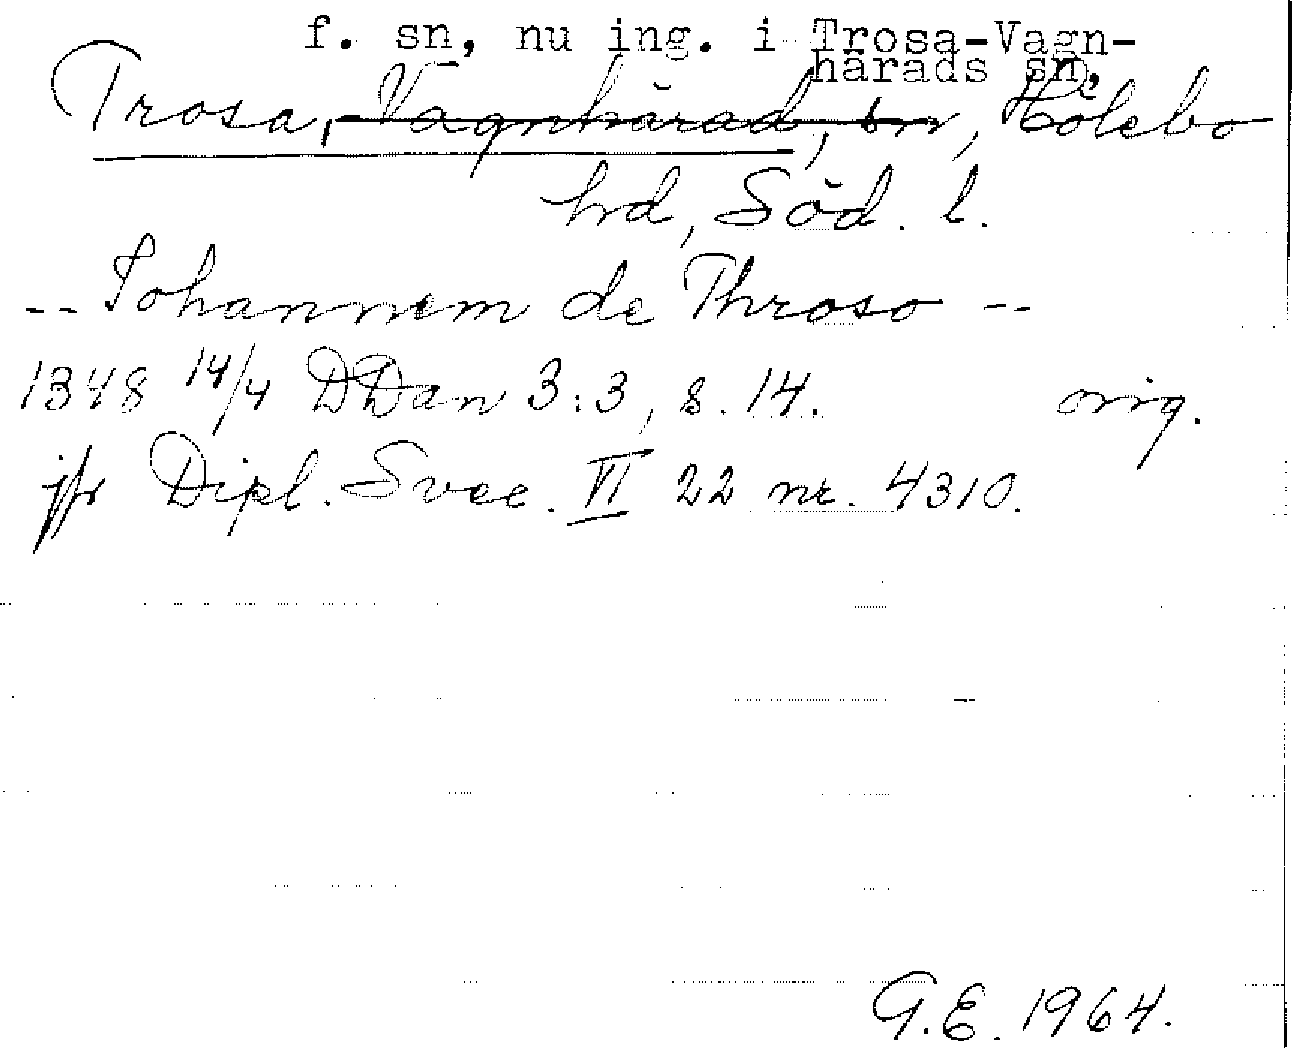 f. sn, nu ing. i Trosa-Vagn-
härads sn,
Trosa, Vagnhärad, sn, Hölebo
hd, Söd. l.
-- Iohannem de Throso --
1348 14/4 DDan 3:3, s. 14. orig.
jfr Dipl. Svec. VI 22 nr. 4310.
G.E. 1964.